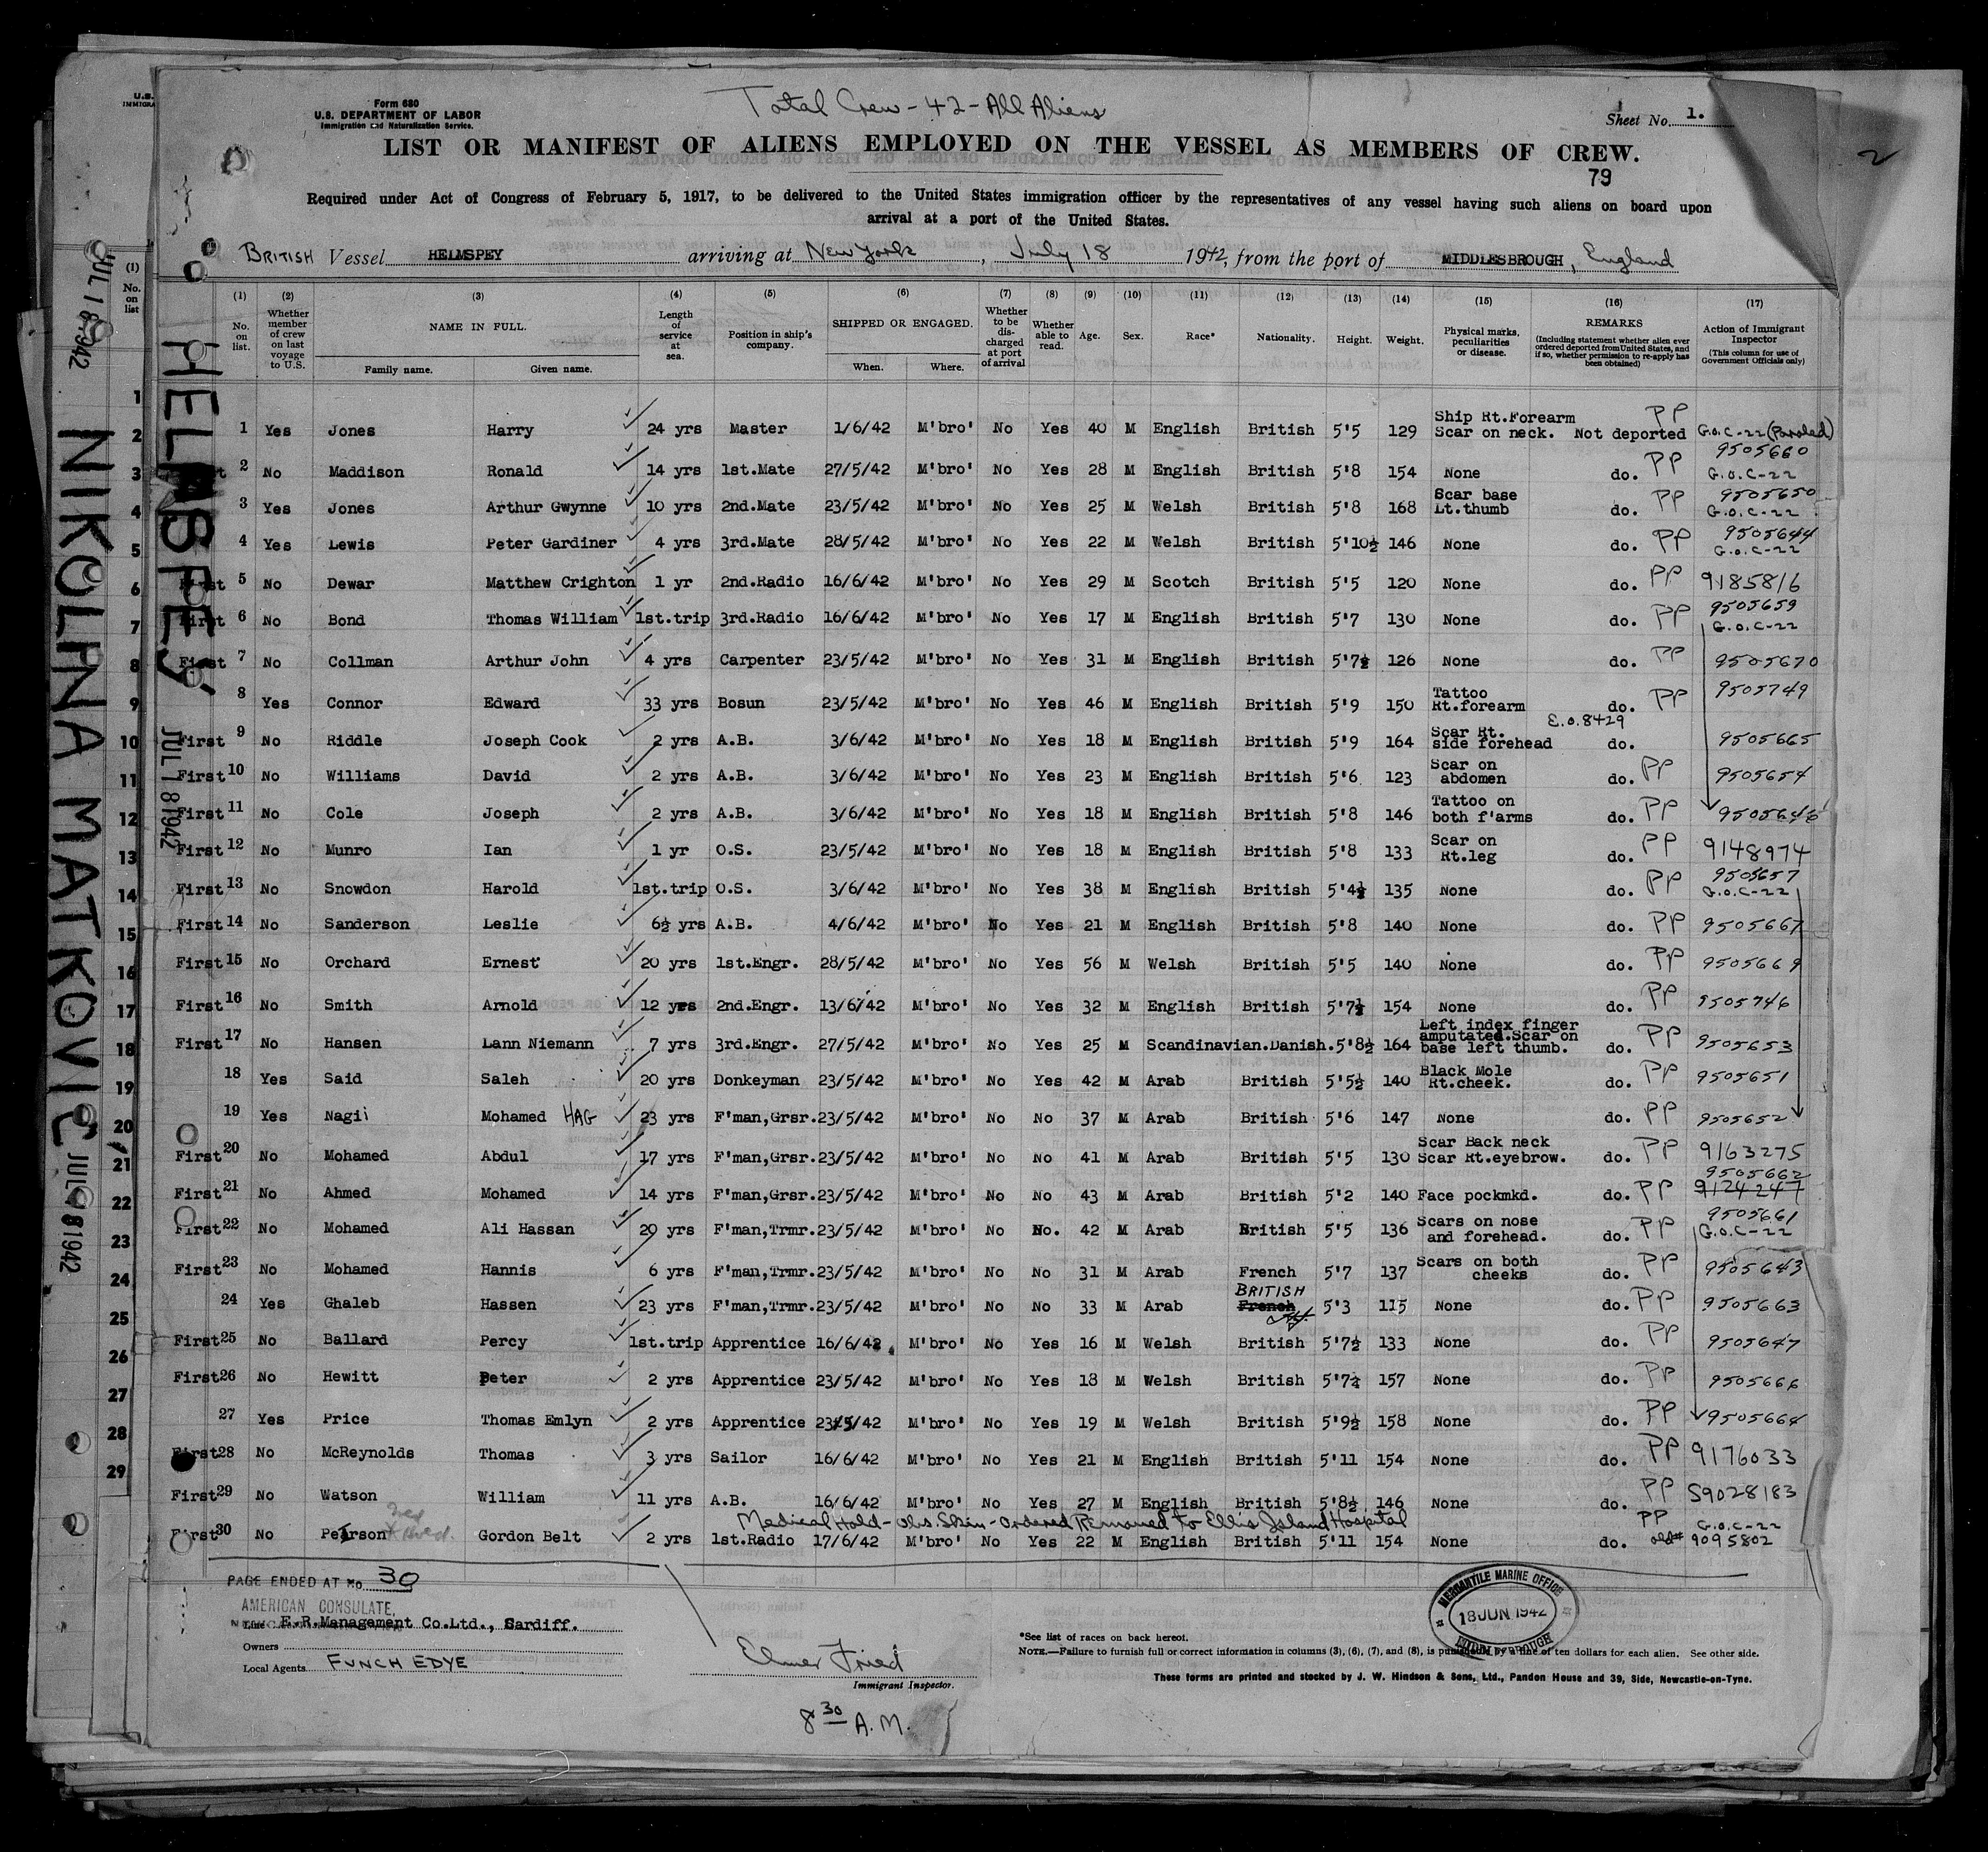 Total Crew - 42 - All Aliens
Form 680
U.S. DEPARTMENT OF LABOR
Immigration and Naturalization Service.
Sheet No. 1.
LIST OR MANIFEST OF ALIENS EMPLOYED ON THE VESSEL AS MEMBERS OF CREW.
2
79
Required under Act of Congress of February 5, 1917, to be delivered to the United States immigration officer by the representatives of any vessel having such aliens on board upon
arrival at a port of the United States.
BRITISH Vessel HELMSPEY arriving at New York, July 18 1942, from the port of MIDDLESBROUGH, England
(1) (2) (3) (4) (5) (6) (7) (8) (9) (10) (11) (12) (13) (14) (15) (16) (17)
No. on list. Whether member of crew on last voyage to U.S. NAME IN FULL. Family name. Given name. Length of service at sea. Position in ship's company. SHIPPED OR ENGAGED. When. Where. Whether to be discharged at port of arrival Whether able to read. Age. Sex. Race* Nationality. Height. Weight. Physical marks, peculiarities or disease. REMARKS (Including statement whether alien ever ordered deported from United States, and if so, whether permission to re-apply has been obtained) Action of Immigrant Inspector (This column for use of Government Officials only)
1 Yes Jones Harry 24 yrs Master 1/6/42 M'bro' No Yes 40 M English British 5'5 129 Ship Rt.Forearm Scar on neck. Not deported PP G.O.C-22 (Paroled)
2 No Maddison Ronald 14 yrs 1st.Mate 27/5/42 M'bro' No Yes 28 M English British 5'8 154 None do. PP 9505660 G.O.C-22
3 Yes Jones Arthur Gwynne 10 yrs 2nd.Mate 23/5/42 M'bro' No Yes 25 M Welsh British 5'8 168 Scar base Lt.thumb do. PP 9505650 G.O.C-22
4 Yes Lewis Peter Gardiner 4 yrs 3rd.Mate 28/5/42 M'bro' No Yes 22 M Welsh British 5'10½ 146 None do. PP 9505644 G.O.C-22
First 5 No Dewar Matthew Crighton 1 yr 2nd.Radio 16/6/42 M'bro' No Yes 29 M Scotch British 5'5 120 None do. PP 9185816
First 6 No Bond Thomas William 1st.trip 3rd.Radio 16/6/42 M'bro' No Yes 17 M English British 5'7 130 None do. PP 9505659 G.O.C-22
First 7 No Collman Arthur John 4 yrs Carpenter 23/5/42 M'bro' No Yes 31 M English British 5'7½ 126 None do. PP 9505670
8 Yes Connor Edward 33 yrs Bosun 23/5/42 M'bro' No Yes 46 M English British 5'9 150 Tattoo Rt.forearm do. PP 9505749
First 9 No Riddle Joseph Cook 2 yrs A.B. 3/6/42 M'bro' No Yes 18 M English British 5'9 164 Scar Rt. side forehead E.O.8429 do. 9505665
First 10 No Williams David 2 yrs A.B. 3/6/42 M'bro' No Yes 23 M English British 5'6 123 Scar on abdomen do. PP 9505654
First 11 No Cole Joseph 2 yrs A.B. 3/6/42 M'bro' No Yes 18 M English British 5'8 146 Tattoo on both f'arms do. PP 9505646
First 12 No Munro Ian 1 yr O.S. 23/5/42 M'bro' No Yes 18 M English British 5'8 133 Scar on Rt.leg do. PP 9148974
First 13 No Snowdon Harold 1st.trip O.S. 3/6/42 M'bro' No Yes 38 M English British 5'4½ 135 None do. PP 9505657 G.O.C-22
First 14 No Sanderson Leslie 6½ yrs A.B. 4/6/42 M'bro' No Yes 21 M English British 5'8 140 None do. PP 9505667
First 15 No Orchard Ernest 20 yrs 1st.Engr. 28/5/42 M'bro' No Yes 56 M Welsh British 5'5 140 None do. PP 9505669
First 16 No Smith Arnold 12 yrs 2nd.Engr. 13/6/42 M'bro' No Yes 32 M English British 5'7½ 154 None do. PP 9505746
First 17 No Hansen Lann Niemann 7 yrs 3rd.Engr. 27/5/42 M'bro' No Yes 25 M Scandinavian.Danish. 5'8½ 164 Left index finger amputated.Scar on base left thumb. do. PP 9505653
18 Yes Said Saleh 20 yrs Donkeyman 23/5/42 M'bro' No Yes 42 M Arab British 5'5½ 140 Black Mole Rt.cheek. do. PP 9505651
19 Yes Nagi Mohamed HAG 23 yrs F'man,Grsr. 23/5/42 M'bro' No No 37 M Arab British 5'6 147 None do. PP 9505652
First 20 No Mohamed Abdul 17 yrs F'man,Grsr. 23/5/42 M'bro' No No 41 M Arab British 5'5 130 Scar Back neck Scar Rt.eyebrow. do. PP 9163275
First 21 No Ahmed Mohamed 14 yrs F'man,Grsr. 23/5/42 M'bro' No No 43 M Arab British 5'2 140 Face pockmkd. do. PP 9505662 9124247
First 22 No Mohamed Ali Hassan 20 yrs F'man,Trmr. 23/5/42 M'bro' No No. 42 M Arab British 5'5 136 Scars on nose and forehead. do. PP 9505661 G.O.C-22
First 23 No Mohamed Hannis 6 yrs F'man,Trmr. 23/5/42 M'bro' No No 31 M Arab French 5'7 137 Scars on both cheeks do. PP 9505643
24 Yes Ghaleb Hassen 23 yrs F'man,Trmr. 23/5/42 M'bro' No No 33 M Arab BRITISH French 5'3 115 None do. PP 9505663
First 25 No Ballard Percy 1st.trip Apprentice 16/6/42 M'bro' No Yes 16 M Welsh British 5'7½ 133 None do. PP 9505647
First 26 No Hewitt Peter 2 yrs Apprentice 23/5/42 M'bro' No Yes 18 M Welsh British 5'7¼ 157 None do. PP 9505666
27 Yes Price Thomas Emlyn 2 yrs Apprentice 23/5/42 M'bro' No Yes 19 M Welsh British 5'9½ 158 None do. PP 9505664
First 28 No McReynolds Thomas 3 yrs Sailor 16/6/42 M'bro' No Yes 21 M English British 5'11 154 None do. PP 9176033
First 29 No Watson William 11 yrs A.B. 16/6/42 M'bro' No Yes 27 M English British 5'8½ 146 None do. PP S9028183
Medical Hold - Obs. Skin - Ordered Removed to Ellis Island Hospital
First 30 No Gordon Belt 2 yrs 1st.Radio 17/6/42 M'bro' No Yes 22 M English British 5'11 154 None do. PP G.O.C-22 old# 9095802
PAGE ENDED AT No. 30
AMERICAN CONSULATE,
Line E.R.Management Co.Ltd., Cardiff.
Owners
Local Agents FUNCH EDYE
Elmer Fried
Immigrant Inspector.
8 30 A.M.
MERCANTILE MARINE OFFICE
18 JUN 1942
MIDDLESBROUGH
*See list of races on back hereof.
NOTE.—Failure to furnish full or correct information in columns (3), (6), (7), and (8), is punishable by a fine of ten dollars for each alien. See other side.
These forms are printed and stocked by J. W. Hindson & Sons, Ltd., Pandon House and 39, Side, Newcastle-on-Tyne.
HELMSPEY
JUL 18 1942
JUL 18 1942
NIKOLINA MATKOVIC
JUL 18 1942
U.S.
(1)
No. on list
1
2
3
4
5
6
7
8
9
10
11
12
13
14
15
16
17
18
19
20
21
22
23
24
25
26
27
28
29